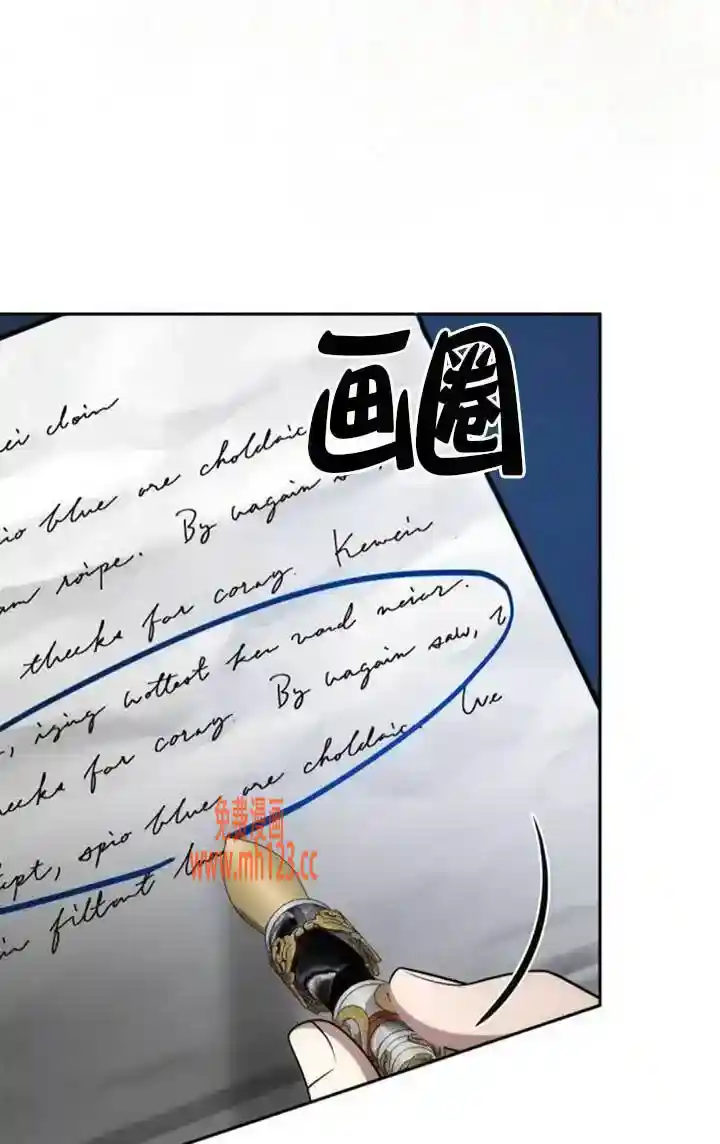 画圈
ei doin
io blue are choldaic
am roipe. By vagain s
theeks for coray. Kewein
, izing wottest ker vard neicr.
heeks for coray. By vagain saw, i
ept, spio blue are choldaic. We
in filtant
免费漫画
www.mh123.cc